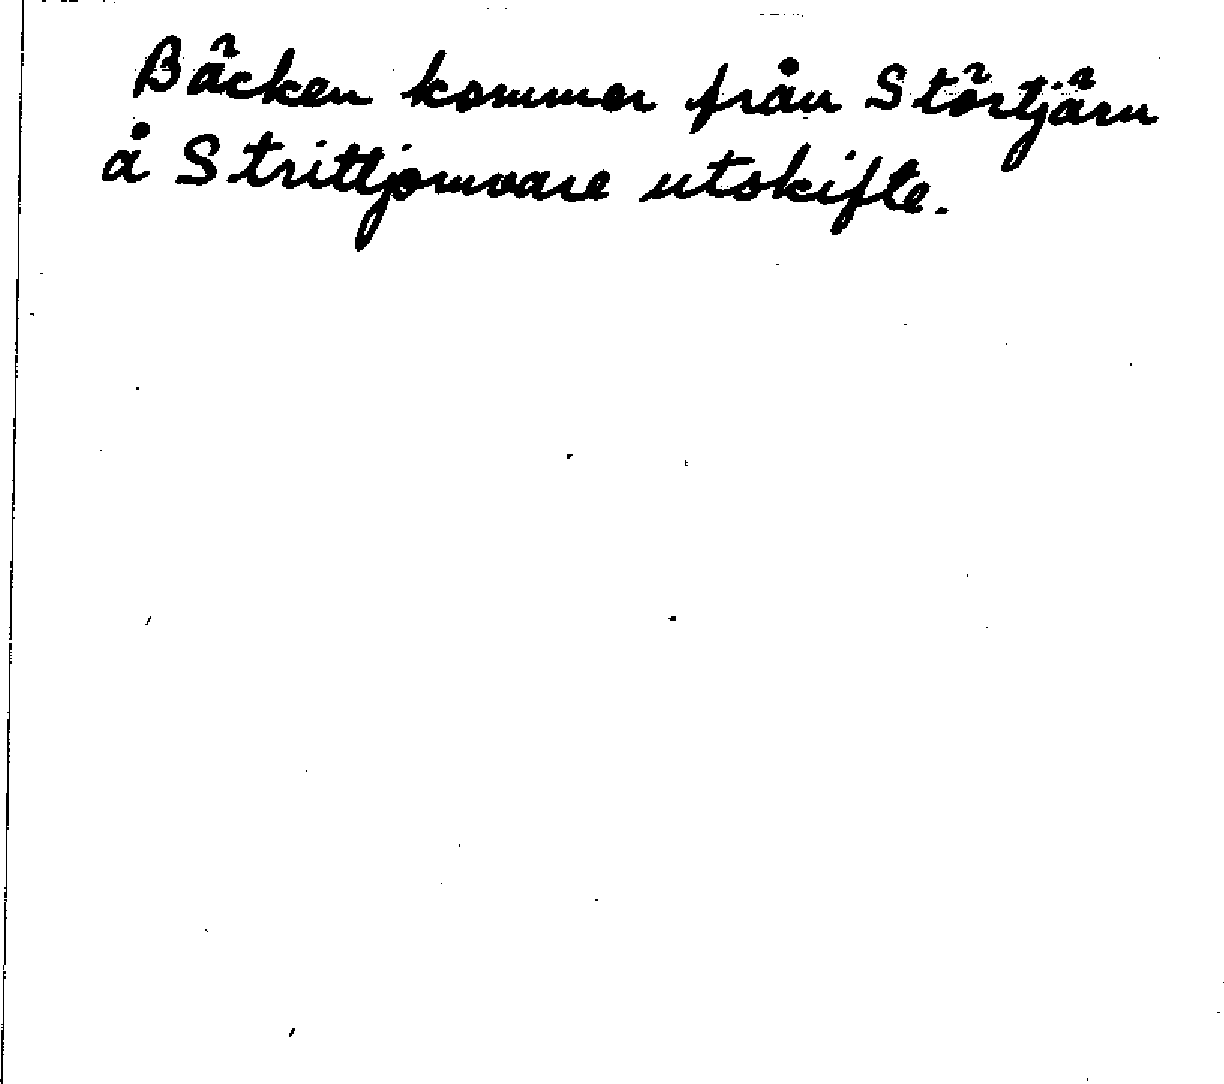 Bäcken kommer från Störtjärn
å Strittjomvare utskifte.